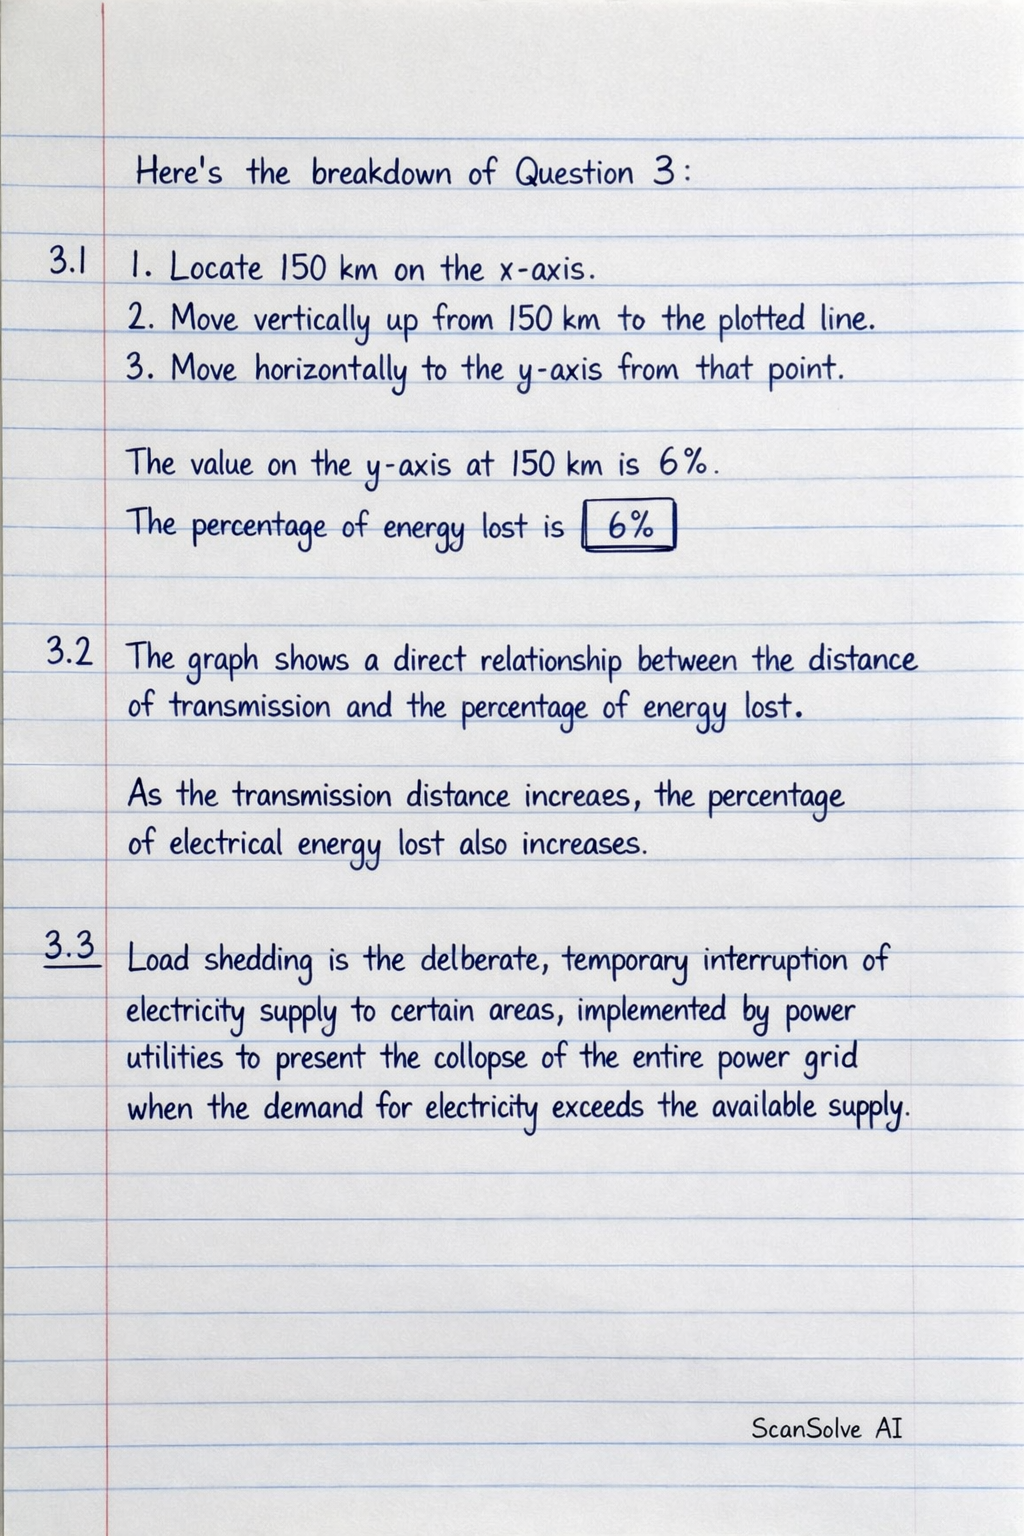 Here's the breakdown of Question 3:
3.1 1. Locate 150 km on the x-axis.
2. Move vertically up from 150 km to the plotted line.
3. Move horizontally to the y-axis from that point.
The value on the y-axis at 150 km is 6%.
The percentage of energy lost is 6%
3.2 The graph shows a direct relationship between the distance
of transmission and the percentage of energy lost.
As the transmission distance increaes, the percentage
of electrical energy lost also increases.
3.3 Load shedding is the delberate, temporary interruption of
electricity supply to certain areas, implemented by power
utilities to present the collapse of the entire power grid
when the demand for electricity exceeds the available supply.
ScanSolve AI